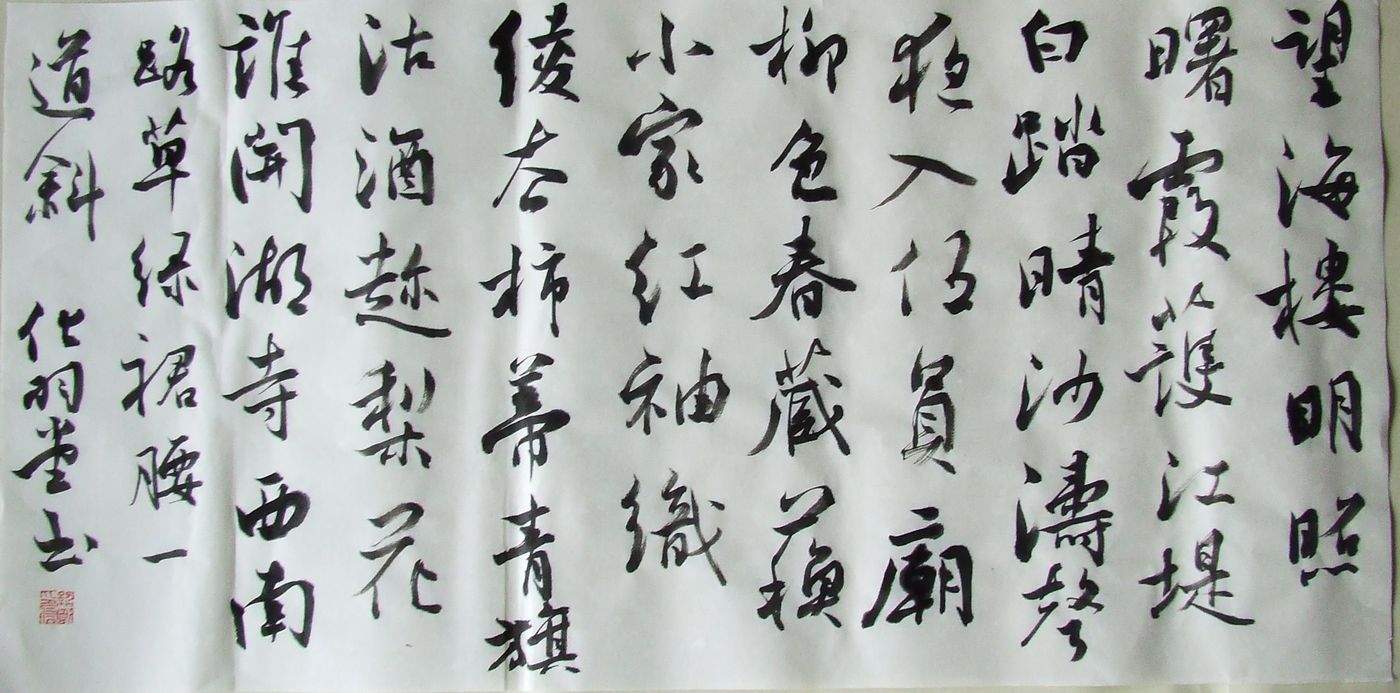 望海樓明照
曙霞護江堤
白踏晴沙濤聲
夜入伍員廟
柳色春藏蘇
小家紅袖織
綾夸柿蒂青旗
沽酒趁梨花
誰開湖寺西南
路草綠裙腰一
道斜 化羽堂书